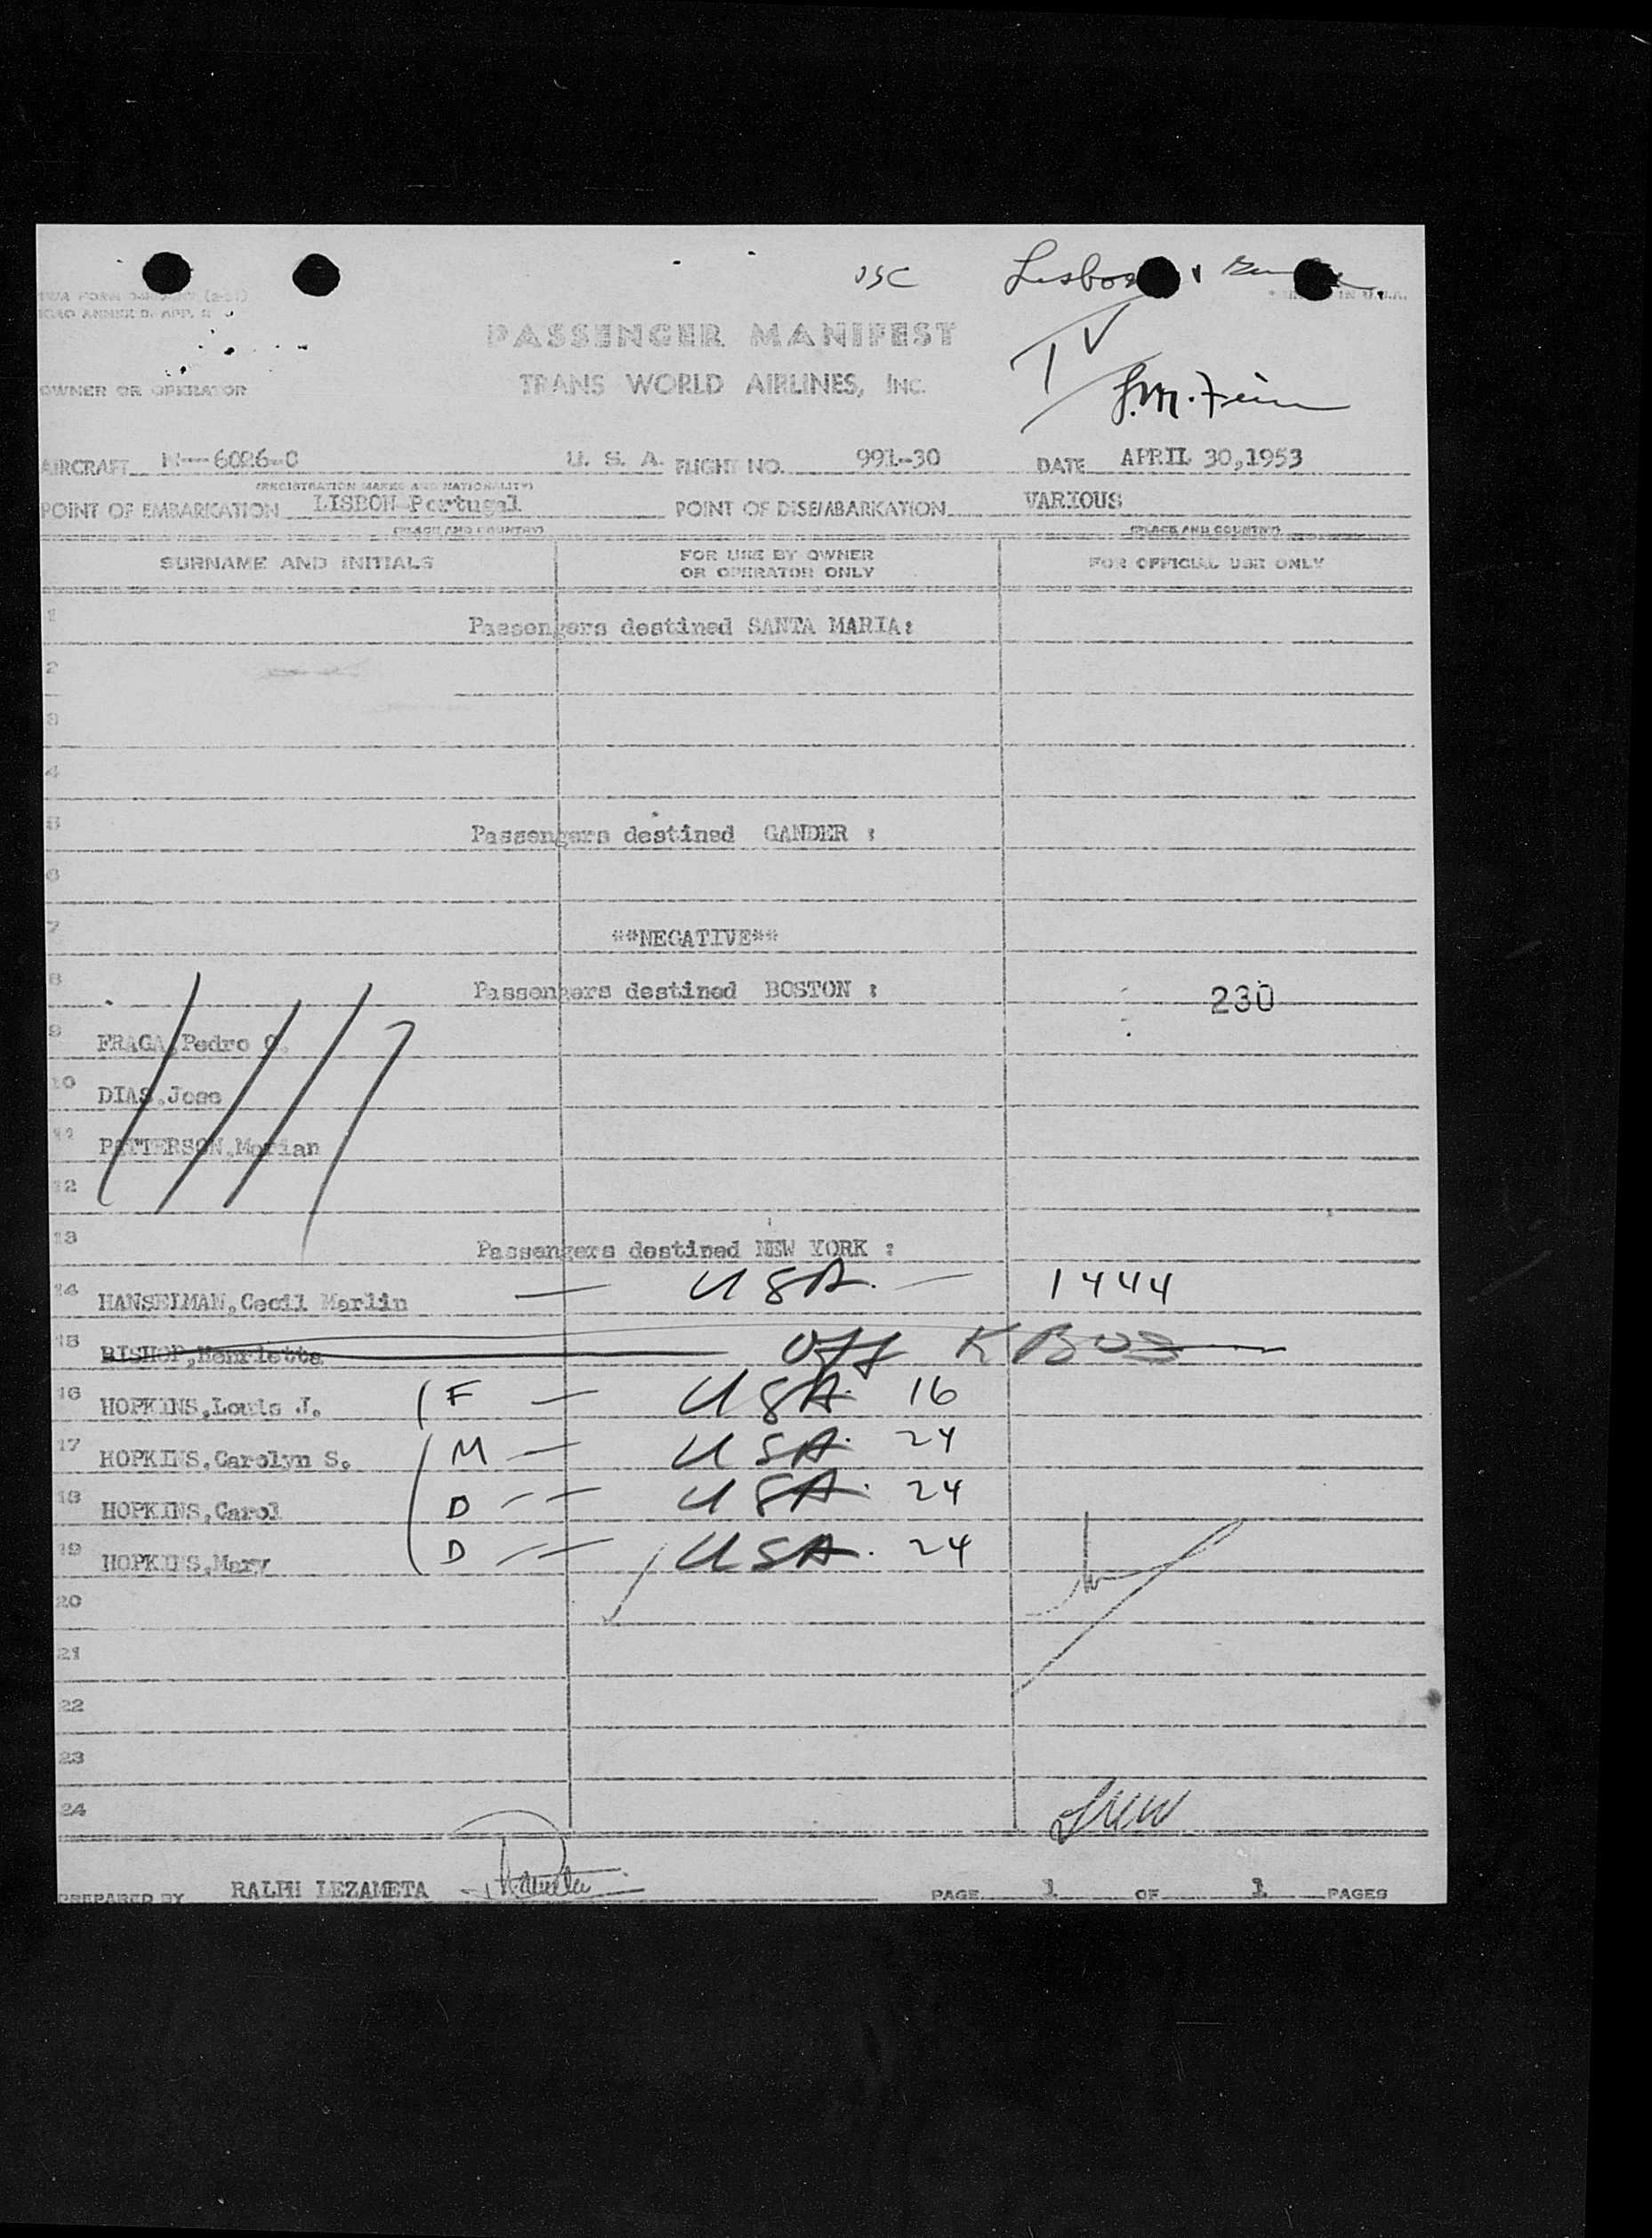 JSC Lisbon
TWA FORM
ICAO ANNEX 9, APP.
IN U.S.A.
PASSENGER MANIFEST
TRANS WORLD AIRLINES, INC.
OWNER OR OPERATOR
AIRCRAFT N--6026-C U. S. A. FLIGHT NO. 991-30 DATE APRIL 30,1953
(REGISTRATION MARKS AND NATIONALITY)
POINT OF EMBARKATION LISBON Portugal POINT OF DISEMBARKATION VARIOUS
(PLACE AND COUNTRY) (PLACE AND COUNTRY)
SURNAME AND INITIALS FOR USE BY OWNER OR OPERATOR ONLY FOR OFFICIAL USE ONLY
1 Passengers destined SANTA MARIA:
2
3
4
5 Passengers destined GANDER :
6
7 **NEGATIVE**
8 Passengers destined BOSTON : 230
9 FRAGA,Pedro C.
10 DIAS,Jose
11 PATTERSON,Marian
12
13 Passengers destined NEW YORK :
14 HANSELMAN,Cecil Marlin — USA. — 1444
15 BISHOP,Henrietta Off KBOS
16 HOPKINS,Louis J. F — USA. 16
17 HOPKINS,Carolyn S. M — USA. 24
18 HOPKINS,Carol D -- USA. 24
19 HOPKINS,Mary D -- USA. 24
20
21
22
23
24
PREPARED BY RALPH LEZAMETA PAGE 1 OF 1 PAGES